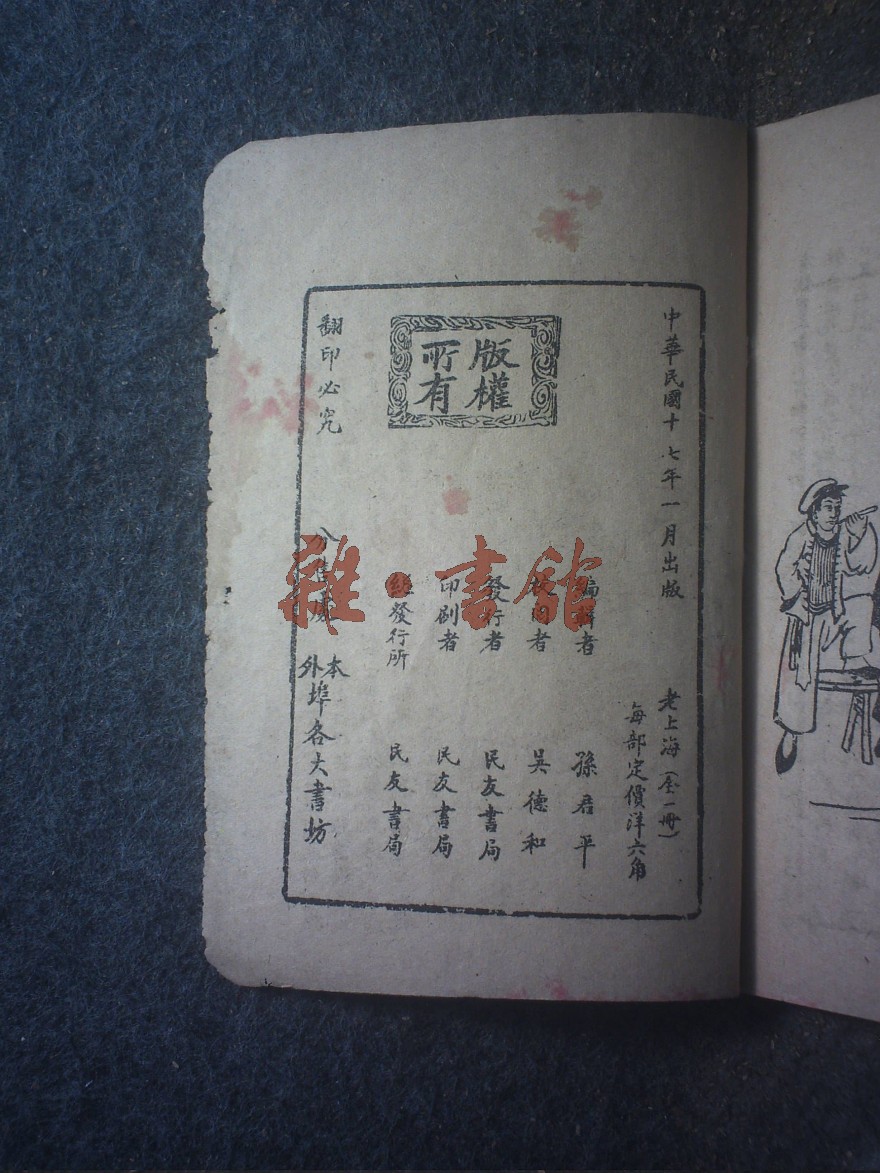 中華民國十七年一月出版
老上海（全一冊）
每部定價洋六角
編輯者 孫君平
校閱者 吳德和
發行者 民友書局
印刷者 民友書局
總發行所 民友書局
版權所有
翻印必究
分售處 本外埠各大書坊
雅·書館